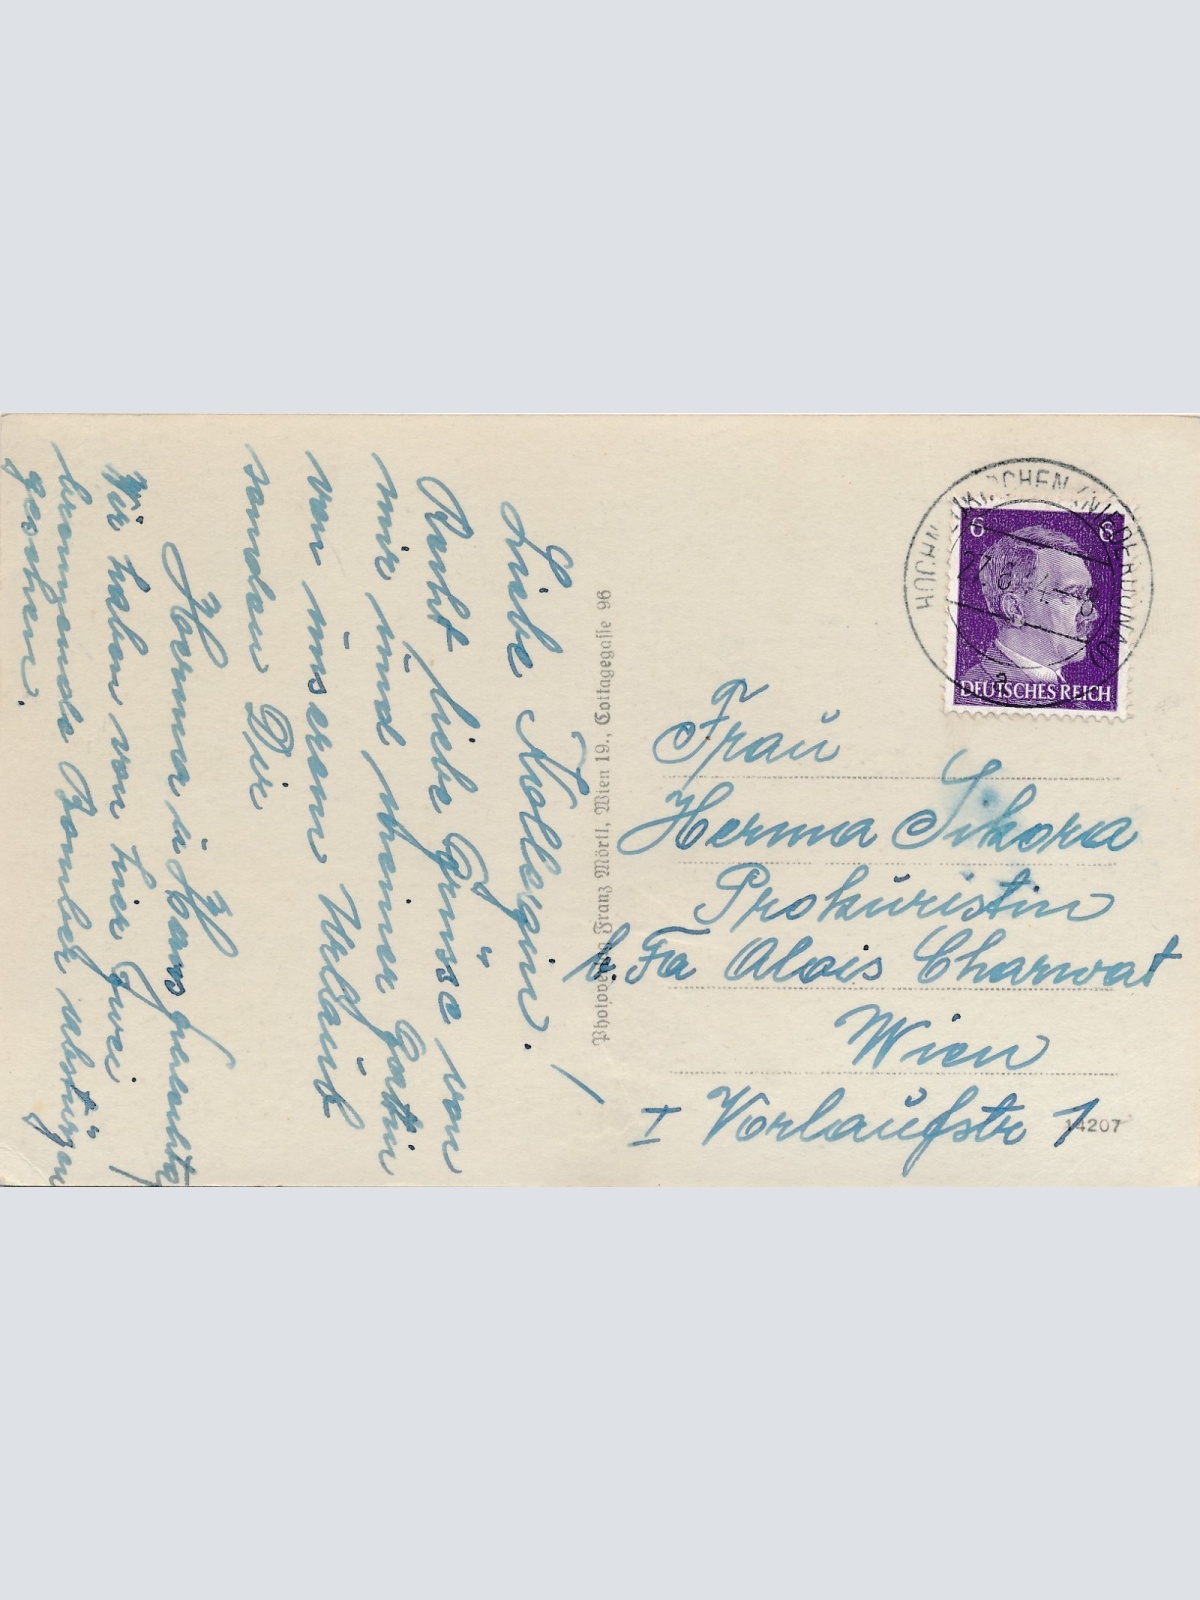 Liebe Kollegin!
Recht liebe Grüsse von
mir und meiner Gattin
von unserem Urlaub
senden Dir
Herma u Hans
Wir haben von hier zwei
brennende Bomber abstürzen
gesehen.
Photoverlag Franz Mörtl, Wien 19., Cottagegasse 96
HOCHNEUKIRCHEN (NIEDERDONAU)
27.8.44.-8
a
6 6
DEUTSCHES REICH
Frau
Herma Sikora
Prokuristin
b. Fa Alois Charwat
Wien
I Vorlaufstr 1
14207